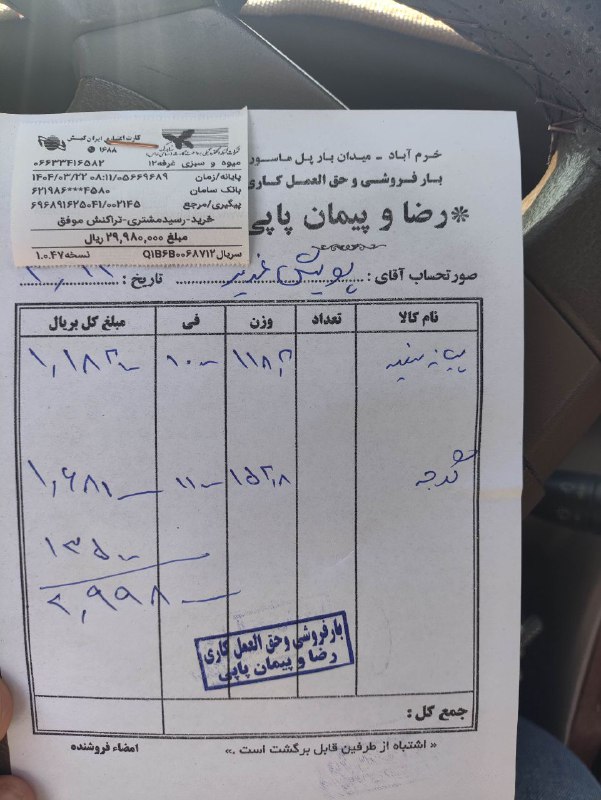 کارت اعتباری ایران کیش
۱۶۸۸
میوه و سبزی غرفه۱۲
۰۶۶۳۳۴۱۶۵۸۲
پایانه/زمان
۱۴۰۴/۰۳/۲۲ ۰۸:۱۱/۰۵۶۶۹۶۸۹
بانک سامان
۶۲۱۹۸۶***۴۵۸۰
پیگیری/مرجع
۶۹۶۸۹۱۶۲۵۰۴۱/۰۰۲۱۴۵
خرید-رسیدمشتری-تراکنش موفق
مبلغ ۲۹,۹۸۰,۰۰۰ ریال
سریال Q1B6B0068712 نسخه۱.۰.۴۷
خرم آباد - میدان بار پل ماسور
بار فروشی و حق العمل کاری
*رضا و پیمان پاپی
صورتحساب آقای : تاریخ :
نام کالا تعداد وزن فی مبلغ کل بریال
پیاز سفید ۱۱۸,۲ ۱۰۰۰ ۱,۱۸۲۰۰
گوجه ۱۵۲,۸ ۱۱۰۰ ۱,۶۸۱۰۰
۱۳۵۰۰
۲,۹۹۸۰۰
بارفروشی وحق العمل کاری
رضا و پیمان پاپی
جمع کل :
« اشتباه از طرفین قابل برگشت است .» امضاء فروشنده